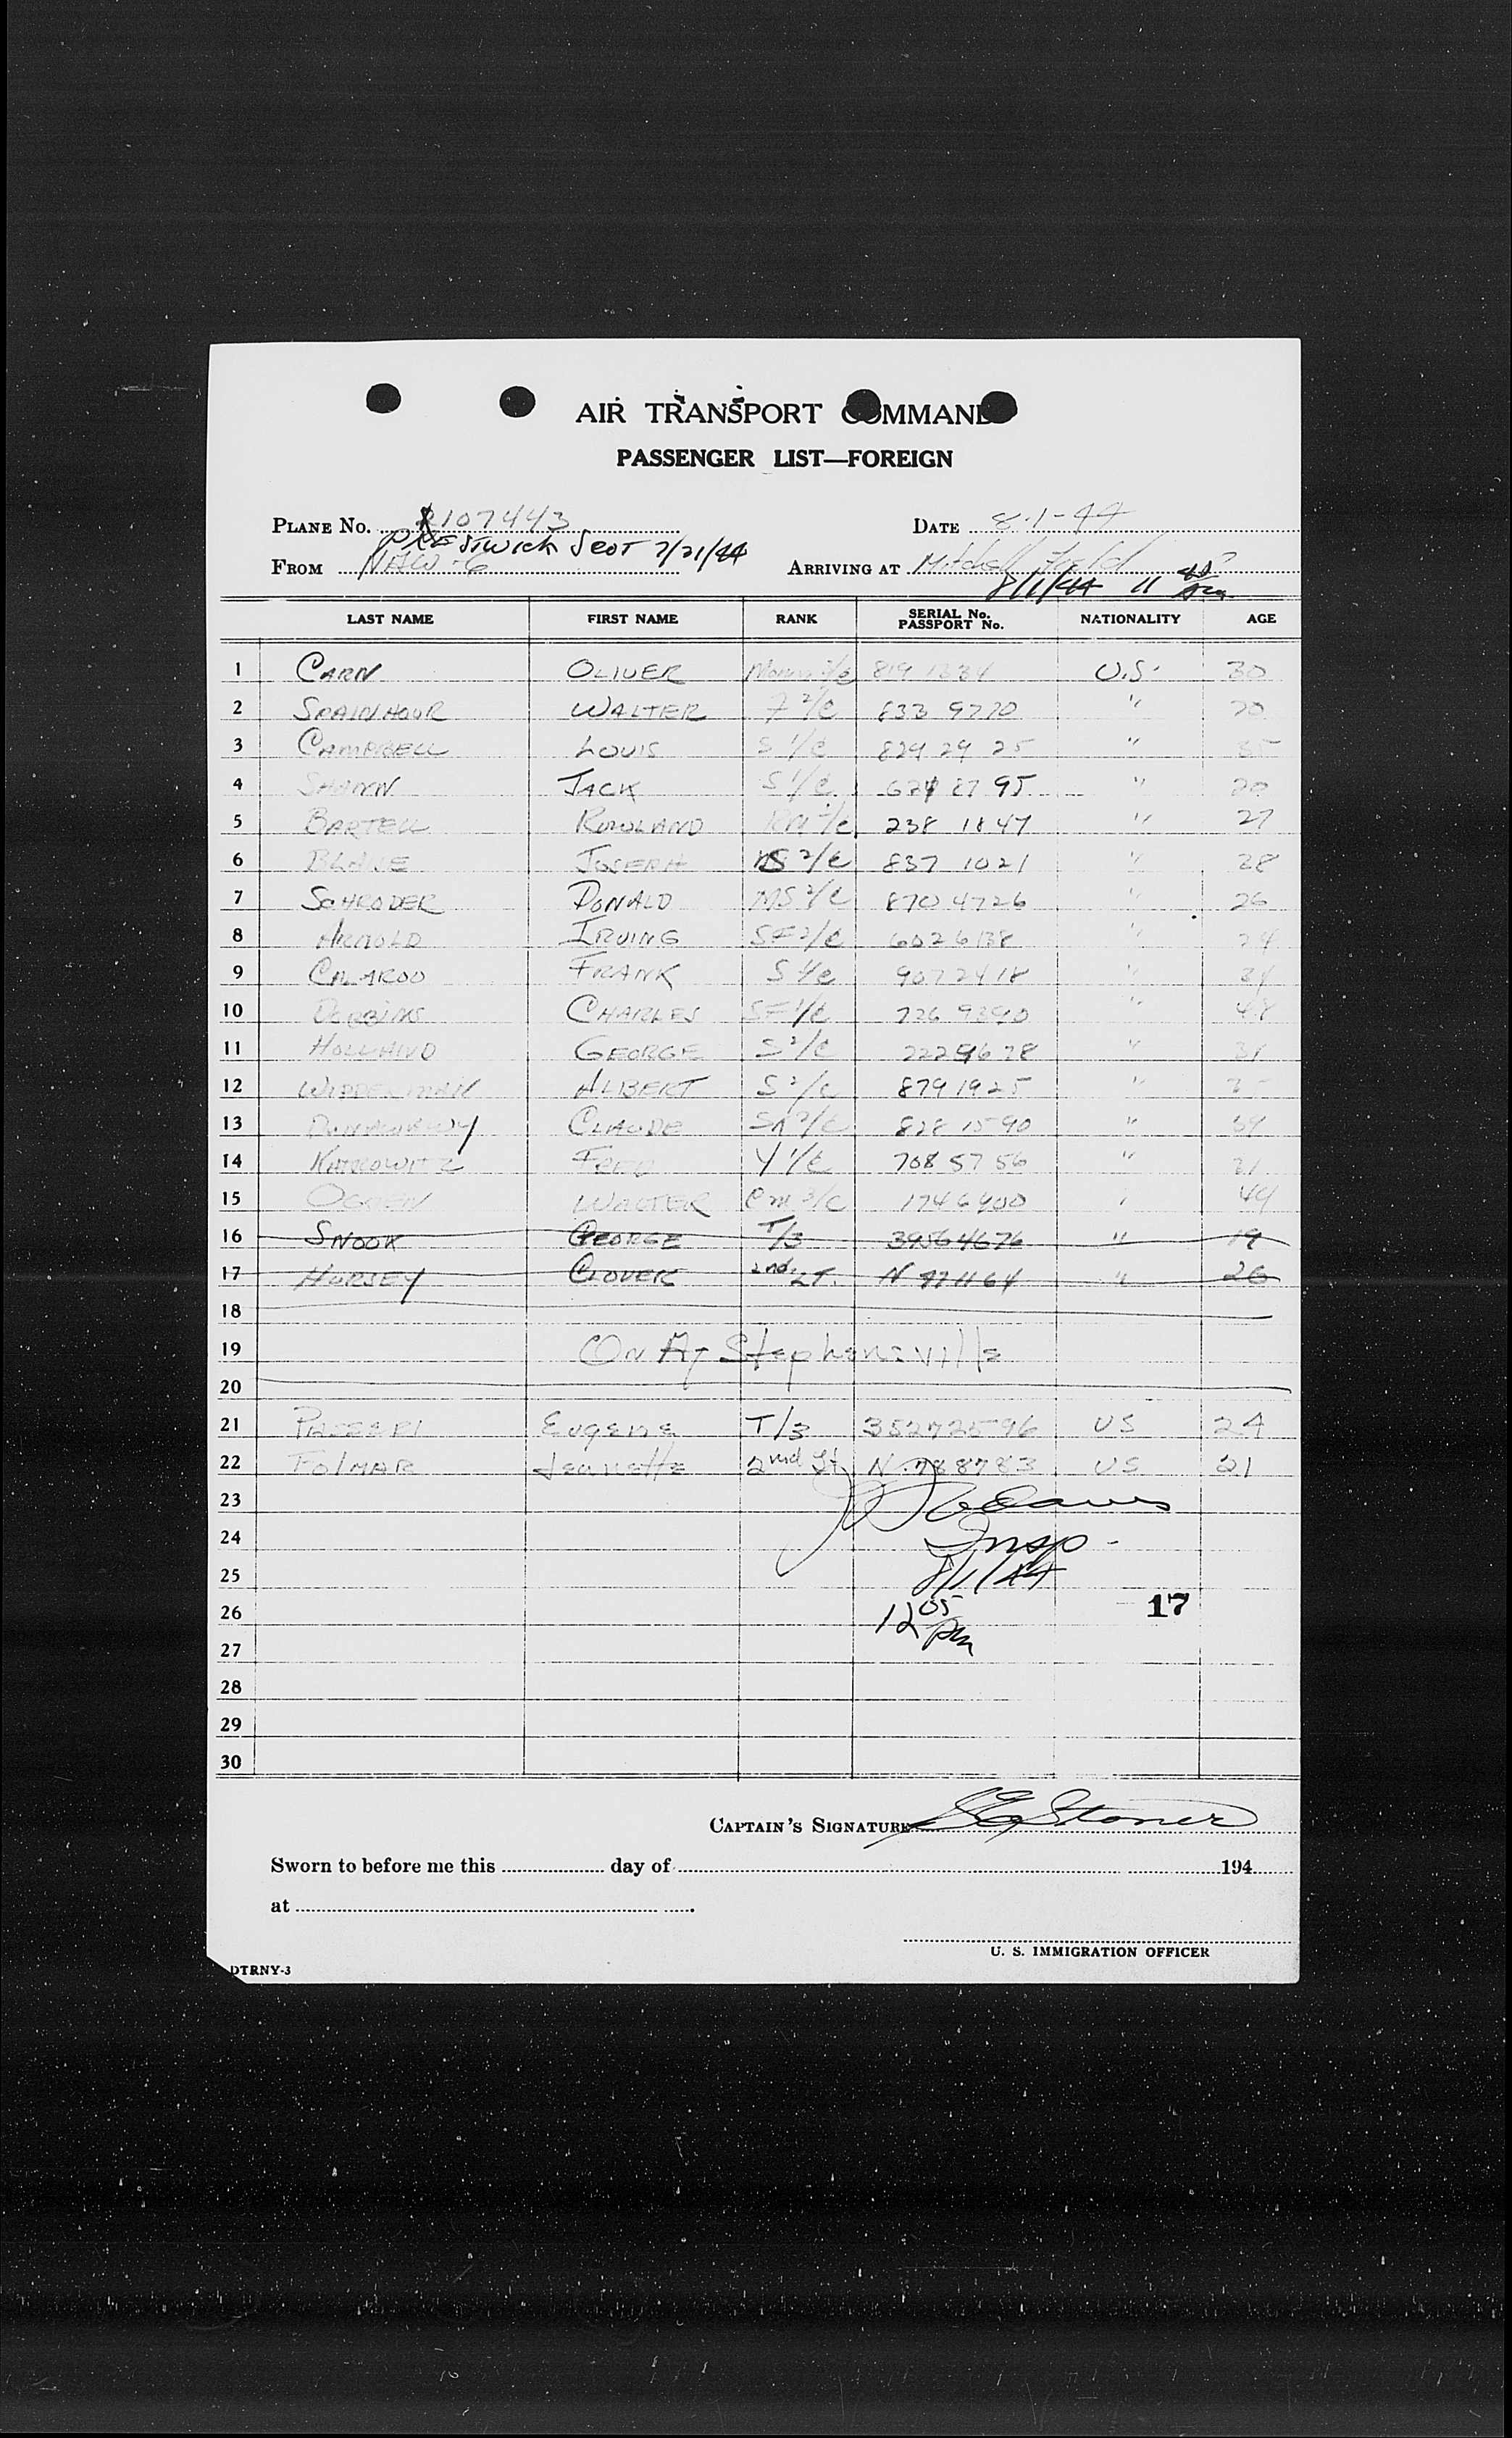 AIR TRANSPORT COMMAND
PASSENGER LIST—FOREIGN
PLANE No. 107443 DATE 8-1-44
Prestwick Scot 7/31/44
FROM NAW-6 ARRIVING AT Mitchell Field
8/1/44 11 40 Am
LAST NAME FIRST NAME RANK SERIAL No. PASSPORT No. NATIONALITY AGE
1 CARN OLIVER 819 1334 U.S. 30
2 SPAINHOUR WALTER F 2/C 833 9770 " 20
3 CAMPBELL LOUIS S 1/C 829 29 25 "
4 JACK S 1/C 87 95 " 20
5 BARTELL ROWLAND 238 1847 " 27
6 JOSEPH 2/C 837 1021 " 38
7 SCHRODER DONALD MS 2/C 870 4726 " 26
8 ARNOLD IRVING SF 2/C 602 6138 " 24
9 FRANK S 1/C 907 24 18 "
10 DOBBINS CHARLES SF 1/C 726 9390 " 48
11 HOLLAND GEORGE S 2/C "
12 ALBERT S 2/C 879 1925 "
13 CLAUDE 828 15 90 " 39
14 FRED Y 1/C 708 57 56 "
15 OGDEN WALTER CM 3/C 174 6400 " 44
16 SNOOK GEORGE T/3 39564676 " 19
17 HURSEY CLOVER 2nd LT. N " 26
18
19 On At Stephensville
20
21 Eugene T/3 35272596 US 24
22 Folmar Jeanette 2nd Lt N 788783 US 21
23
24 Insp -
25 8/1/44
26 12 05 Pm 17
27
28
29
30
CAPTAIN'S SIGNATURE Stoner
Sworn to before me this day of 194
at .
U. S. IMMIGRATION OFFICER
DTRNY-3